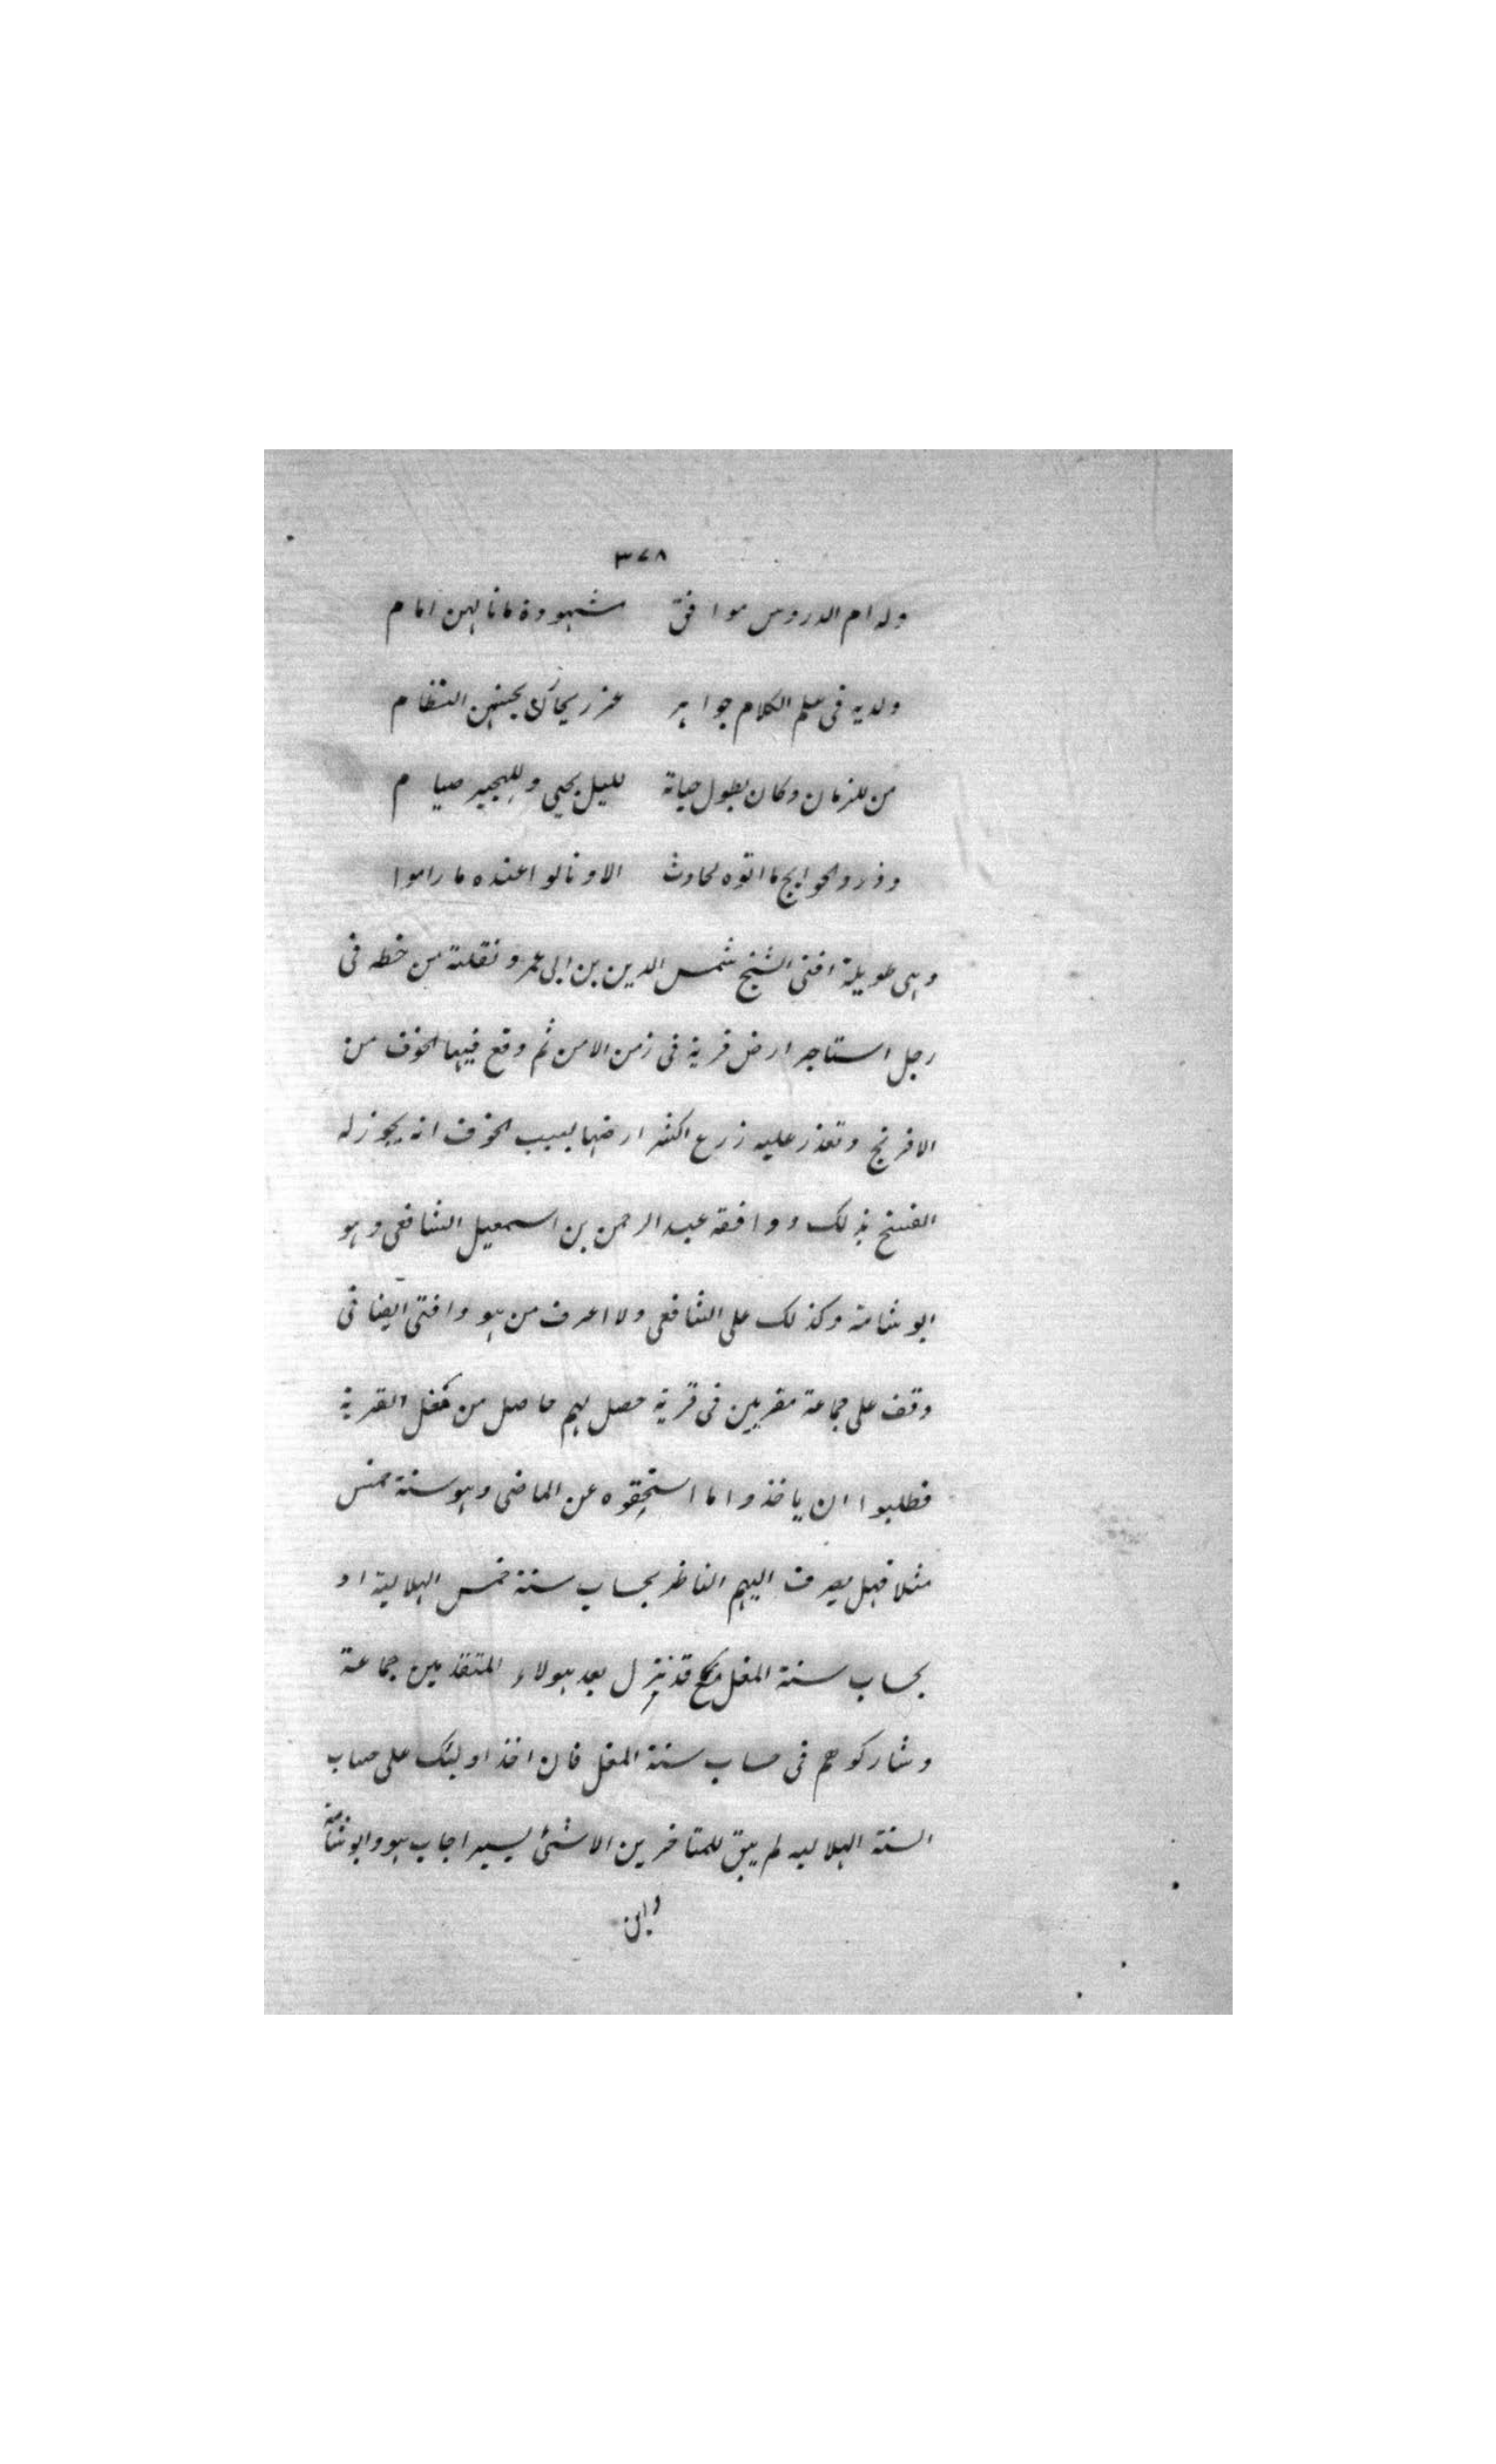 ٣٧٨
وله ام الدروس موافق شهودة مانالهن امام
ولديه فى علم الكلام جواهر عزر بحسنهن النظام
من للزمان وكان بطول حياة لليل يحيى وللهجير صيام
وذروالحوايج مااتوه لحادث الاونالوا عنده ماراموا
وهى طويلة افتى الشيخ شمس الدين بن ابى عمر ونقلته من خطه فى
رجل استاجر ارض قرية فى زمن الامن ثم وقع فيها الخوف من
الافرنج وتعذر عليه زرع اكثر ارضها بسبب الخوف انه يجوز له
الفسخ بذلك ووافقه عبد الرحمن بن اسمعيل الشافعى وهو
ابو شامة وكذلك على الشافعى ولا اعرف من هو وافتى ايضا فى
وقف على جماعة مقربين فى قرية حصل لهم حاصل من مغل القرية
فطلبوا ان ياخذوا ما استحقوه عن الماضى وهو سنة خمس
مثلا فهل يصرف اليهم الناظر بحساب سنة خمس الهلالية او
بحساب سنة المغل مع قد نزل بعد هولاء المتقدمين جماعة
وشاركوهم فى حساب سنة المغل فان اخذ اوليك على حساب
السنة الهلاليه لم يبق للمتاخرين الا شئ يسير اجاب هو وابوشامة
وابن